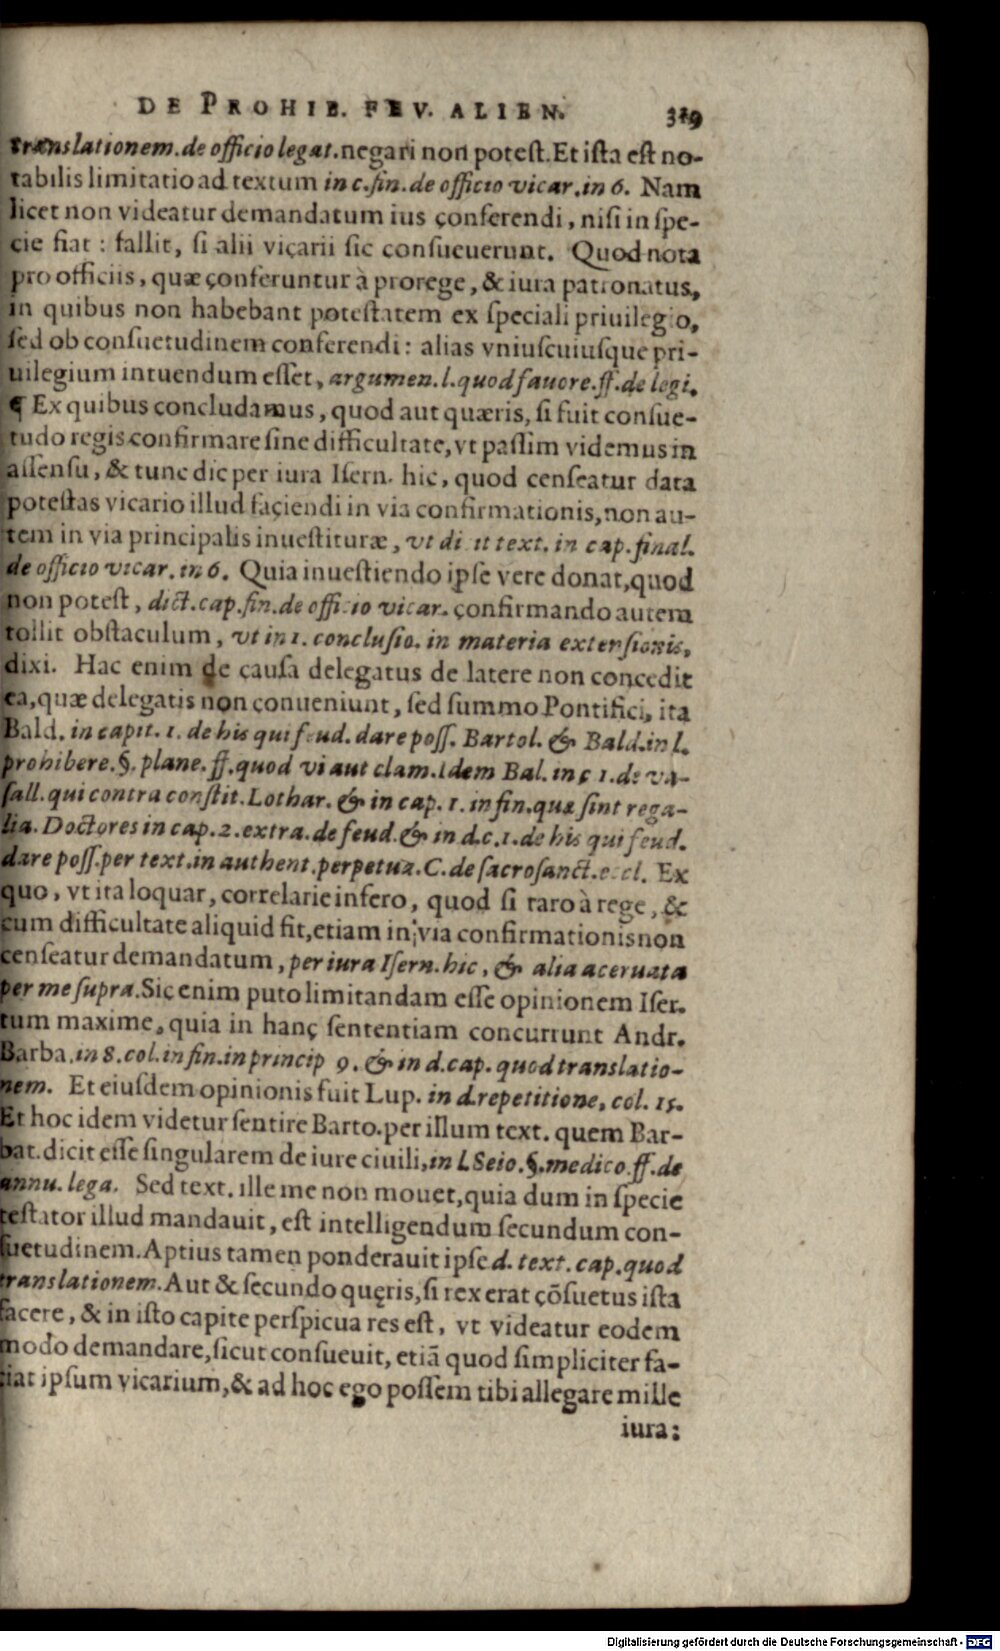 DE PROHIB. FEV. ALIEN. 319
translationem. de officio legat. negari non potest. Et ista est no-
tabilis limitatio ad textum in c. fin. de officio vicar. in 6. Nam
licet non videatur demandatum ius cōferendi, nisi in spe-
cie fiat: fallit, si alii vicarii sic consueuerunt. Quod nota
pro officiis, quæ conferuntur à prorege, & iura patronatus,
in quibus non habebant potestatem ex speciali priuilegio,
sed ob consuetudinem conferendi: alias vniuscuiusque pri-
uilegium intuendum esset, argumen. l. quod fauore. ff. de legi.
¶ Ex quibus concludamus, quod aut quæris, si fuit consue-
tudo regis confirmare sine difficultate, vt passim videmus in
assensu, & tunc dic per iura Isern. hic, quod censeatur data
potestas vicario illud faciendi in via confirmationis, non au-
tem in via principalis inuestituræ, vt dicit text. in cap. final.
de officio vicar. in 6. Quia inuestiendo ipse vere donat, quod
non potest, dict. cap. fin. de officio vicar. confirmando autem
tollit obstaculum, vt in 1. conclusio. in materia extensionis,
dixi. Hac enim de causa delegatus de latere non concedit
ea, quæ delegatis non conueniunt, sed summo Pontifici, ita
Bald. in capit. 1. de his qui feud. dare poss. Bartol. & Bald. in l.
prohibere. §. plane. ff. quod vi aut clam. idem Bal. in c 1. de va-
sall. qui contra constit. Lothar. & in cap. 1. in fin. quæ sint rega-
lia. Doctores in cap. 2. extra. de feud. & in d. c. 1. de his qui feud.
dare poss. per text. in authent. perpetua. C. de sacrosanct. eccl. Ex
quo, vt ita loquar, correlarie infero, quod si raro à rege, &
cum difficultate aliquid fit, etiam in via confirmationis non
censeatur demandatum, per iura Isern. hic, & alia aceruata
per me supra. Sic enim puto limitandam esse opinionem Iser.
tum maxime, quia in hanc sententiam concurrunt Andr.
Barba. in 8. col. in fin. in princip 9. & in d. cap. quod translatio-
nem. Et eiusdem opinionis fuit Lup. in d. repetitione, col. 15.
Et hoc idem videtur sentire Barto. per illum text. quem Bar-
bat. dicit esse singularem de iure ciuili, in l. Seio. §. medico. ff. de
annu. lega. Sed text. ille me non mouet, quia dum in specie
testator illud mandauit, est intelligendum secundum con-
suetudinem. Aptius tamen ponderauit ipse d. text. cap. quod
translationem. Aut & secundo quęris, si rex erat cōsuetus ista
facere, & in isto capite perspicua res est, vt videatur eodem
modo demandare, sicut consueuit, etiā quod simpliciter fa-
ciat ipsum vicarium, & ad hoc ego possem tibi allegare mille
iura:
Digitalisierung gefördert durch die Deutsche Forschungsgemeinschaft - DFG